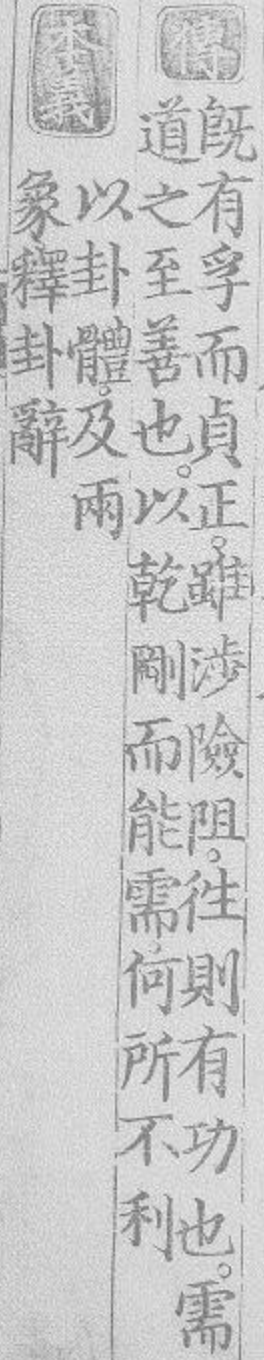 傳
既有孚而貞正。雖涉險阻。徃則有功也。需
道之至善也。以乾剛而能需何所不利
本義
以卦體。及兩
象釋卦辭